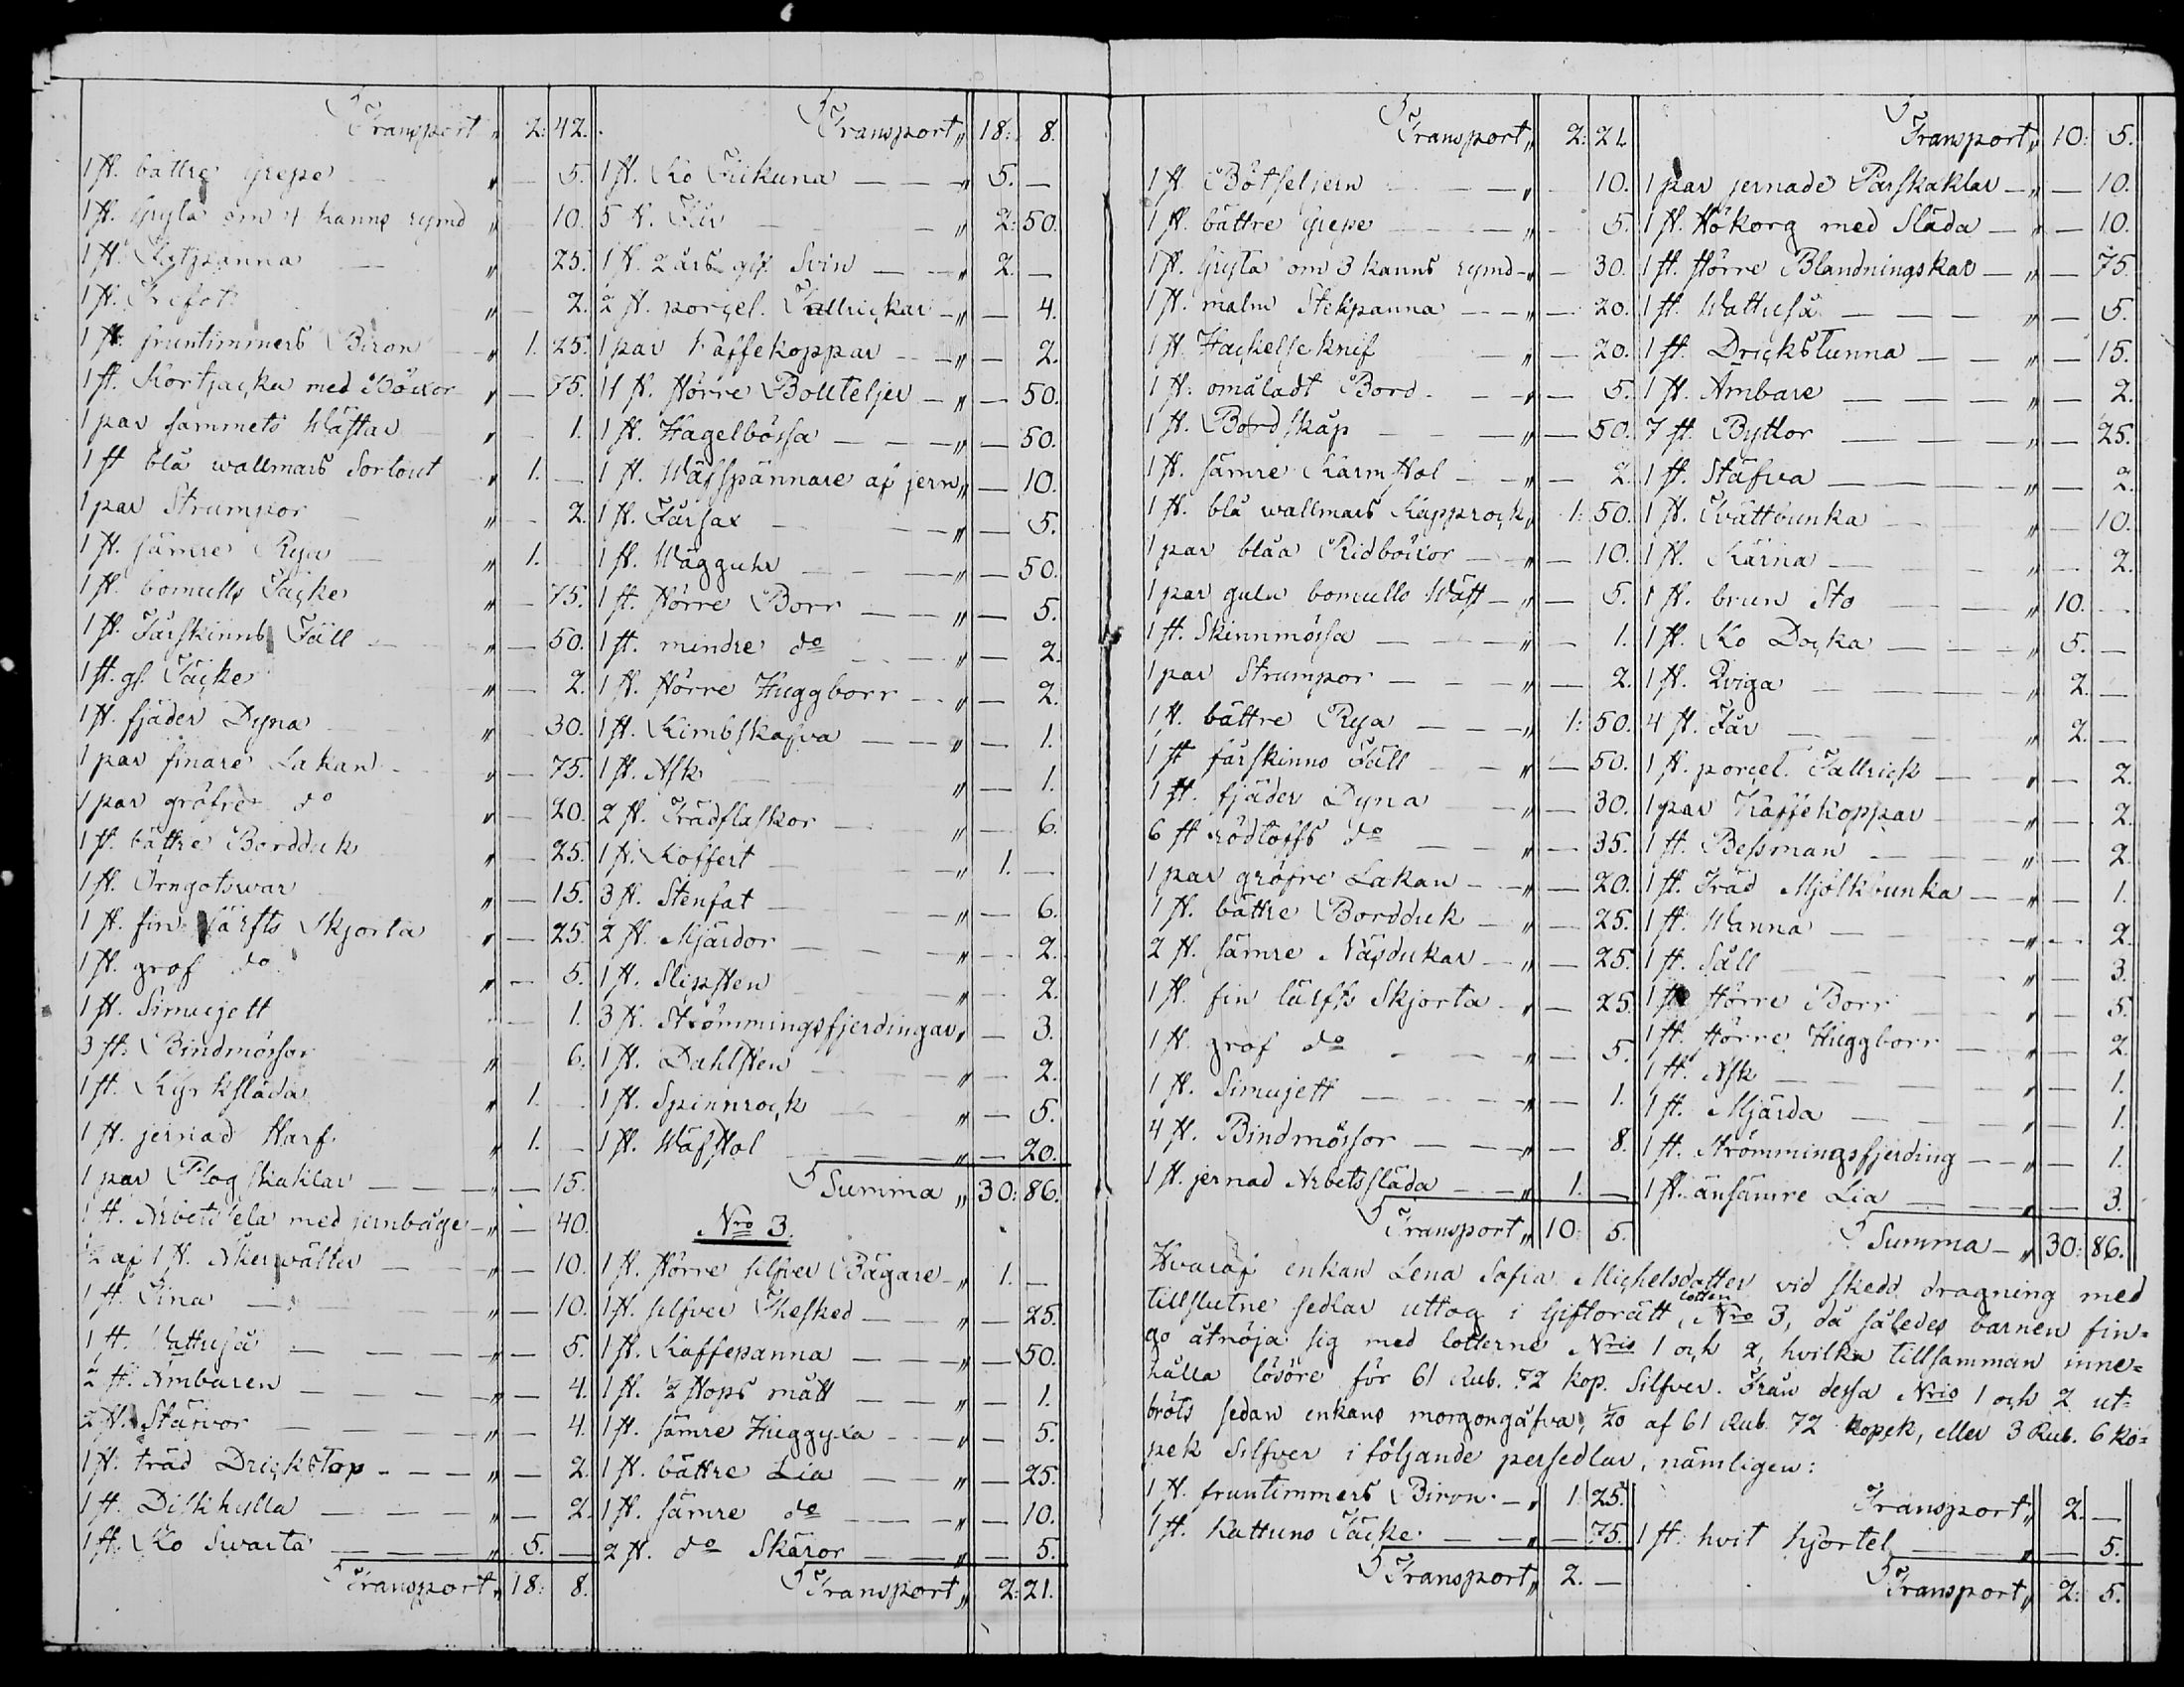 Transport „ 2: 42.
1 st. bättre Grepe „ — 5.
1 st. Gryta om 4 kanns rymd „ 10.
1 st. Stekpanna „ 25.
1 st. Trefot „ — 2.
1 st. fruntimmers Biron „ 1. 25.
1 st. Kortjacka med Böxor „ — 75.
1 par sammets Wästar „ — 1.
1 st blå wallmars Sortout „ 1. —
1 par Strumpor „ — 2.
1 st. sämre Rya „ 1. —
1 st. bomulls Täcke „ — 75.
1 st. Fårskinns Fäll „ — 50.
1 st. gl. Täcke „ — 2.
1 st. fjäder Dyna „ — 30.
1 par finare Lakan „ — 75.
1 par gröfre do „ — 20.
1 st. bättre Bordduk „ — 25.
1 st. Örngotswar „ — 15.
1 st. fin lärfts Skjorta „ — 25.
1 st. grof do „ — 5.
1 st. Simujett — 1.
3 st. Bindmössor „ 6.
1 st. Kyrksläda „ 1. —
1 st. jernad Harf „ 1. —
1 par Plogskaklar — — — „ — 15.
1 st. Arbetssela med jernbåge — „ — 40.
½ af 1 st. Åkerwälter — — „ — 10.
1 st. Tina — „ — 10.
1 st. Wattuså — — — „ — 5.
2 st. Ämbaren — — — „ — 4.
2 st. Stäfvor — — — „ — 4.
1 st. träd Drickstop — — — „ — 2.
1 st. Diskhylla — — — „ — 2.
1 st. Ko Swarta — — — „ 5. —
Transport „ 18: 8.
Transport „ 18: 8.
1 st. Ko Fickuna — — „ 5. —
5 st. Får — — „ 2: 50.
1 st. 2 års gl. Svin — — „ 2. —
2 st. porcel. Tallrickar — „ — 4.
1 par Kaffekoppar — — „ — 2.
11 st. större Boutteljer — „ — 50.
1 st. Hagelbössa — — — „ — 50.
1 st. Wäfspännare af jern „ — 10.
1 st. Fårsax — — „ — 5.
1 st. Wägguhr — — — „ — 50.
1 st. större Borr — — — „ — 5.
1 st. mindre do — — „ — 2.
1 st. större Huggborr — — „ — 2.
1 st. Kimbskafva — — — „ — 1.
1 st. Ask — „ — 1.
2 st. Trädflaskor — — „ — 6.
1 st. Koffert — — „ 1. —
3 st. Stenfat — — „ — 6.
2 st. Mjärdor — — — „ — 2.
1 st. Slipsten — — „ — 2.
3 st. Strömmingsfjerdingar „ — 3.
1 st. Dahlsten — — „ — 2.
1 st. Spinnrock — — „ — 5.
1 st. Wäfstol — — „ — 20.
Summa „ 30: 86.
Nro 3.
1 st. större silfver Bägare — „ 1. —
1 st. silfver Thesked — — „ — 25.
1 st. Kaffepanna — — — „ — 50.
1 st. ½ stops mått — — „ — 1.
1 st. sämre Huggyxa — — „ — 5.
1 st. bättre Lia — — „ — 25.
1 st. sämre do — — — „ — 10.
2 st. do Skäror — — „ — 5.
Transport „ 2: 21.
Transport „ 2: 21.
1 st. Bötseljern — — „ — 10.
1 st. bättre Grepe — — — „ — 5.
1 st. Gryta om 3 kanns rymd — „ — 30.
1 st. malm Stekpanna — — — „ — 20.
1 st. Hackelseknif „ — 20.
1 st. omåladt Bord — — „ — 5.
1 st. Bordskåp — — — „ — 50.
1 st. sämre Karmstol — — „ — 2.
1 st. blå wallmars Kapprock „ 1: 50.
1 par blåa Ridböxor — — „ — 10.
1 par gula bomulls Wäst — „ — 5.
1 st. Skinnmössa — — — „ — 1.
1 par Strumpor — — — „ — 2.
1 st. bättre Rya — — — „ 1: 50.
1 st fårskinns Fäll — — „ — 50.
1 st. fjäder Dyna — — „ — 30.
6 st do — — „ — 35.
1 par gröfre Lakan — — „ — 20.
1 st. bättre Bordduk — „ — 25.
2 st. sämre Näsdukar — „ — 25.
1 st. fin lärfts Skjorta — „ — 25.
1 st. grof do — — „ — 5.
1 st. Simujett — — — „ — 1.
4 st. Bindmössor — — „ — 8.
1 st. jernad Arbetssläda — — „ 1. —
Transport „ 10: 5.
Transport „ 10: 5.
1 par jernade Parskaklar — „ — 10.
1 st. Hökorg med Släda — „ — 10.
1 st. större Blandningskar — „ — 75.
1 st. Wattuså — — — „ — 5.
1 st. Dricks­tunna — — „ — 15.
1 st. Ämbare — — — „ — 2.
7 st. Byttor — — — „ — 25.
1 st. Stäfva — — — „ — 2.
1 st. Tvättbunka — — „ — 10.
1 st. Kärna — — — „ — 2.
1 st. brun Sto — — „ 10. —
1 st. Ko Docka — — — „ 5. —
1 st. Qviga — — — „ 2. —
4 st. Får — — — „ 2. —
1 st. porcel. Tallrick — — „ — 2.
1 par Kaffekoppar — — „ — 2.
1 st. Bessman — — „ — 2.
1 st. Träd Mjölkbunka — — „ — 1.
1 st. Wanna — — — „ — 2.
1 st. Såll — — „ — 3.
1 st. större Borr — — „ — 5.
1 st. större Huggborr — — „ — 2.
1 st. Ask — — — „ — 1.
1 st. Mjärda — — — „ — 1.
1 st. strömmingsfjerding — — „ — 1.
1 st. änsämre Lia — — „ — 3.
Summa — „ 30: 86.
Hvaraf enkan Lena Sofia Michelsdotter vid skedd dragning med
tillslutne sedlar uttog i Giftorätt lotten Nro 3, då således barnen fin-
go åtnöja sig med lotterne Nris 1 och 2, hvilka tillsamman inne-
hålla lösöre för 61 Rub. 72 kop. Silfver. Från dessa Nris 1 och 2 ut-
bröts sedan enkans morgongåfva, 1/20 af 61 Rub. 72 kopek, eller 3 Rub. 6 ko-
pek Silfver i följande persedlar, nämligen:
1 st. fruntimmers Biron — „ 1: 25.
1 st. Kattuns Täcke — — „ — 75.
Transport „ 2. —
Transport „ 2. —
1 st. hvit Kjortel — — „ — 5.
Transport „ 2: 5.